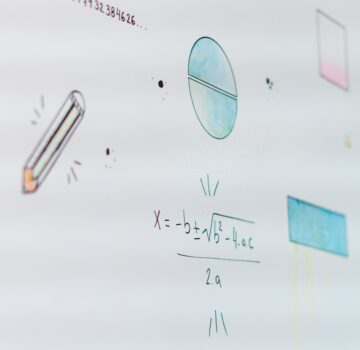 32384626...
x = -b±√b²-4.ac
2.a